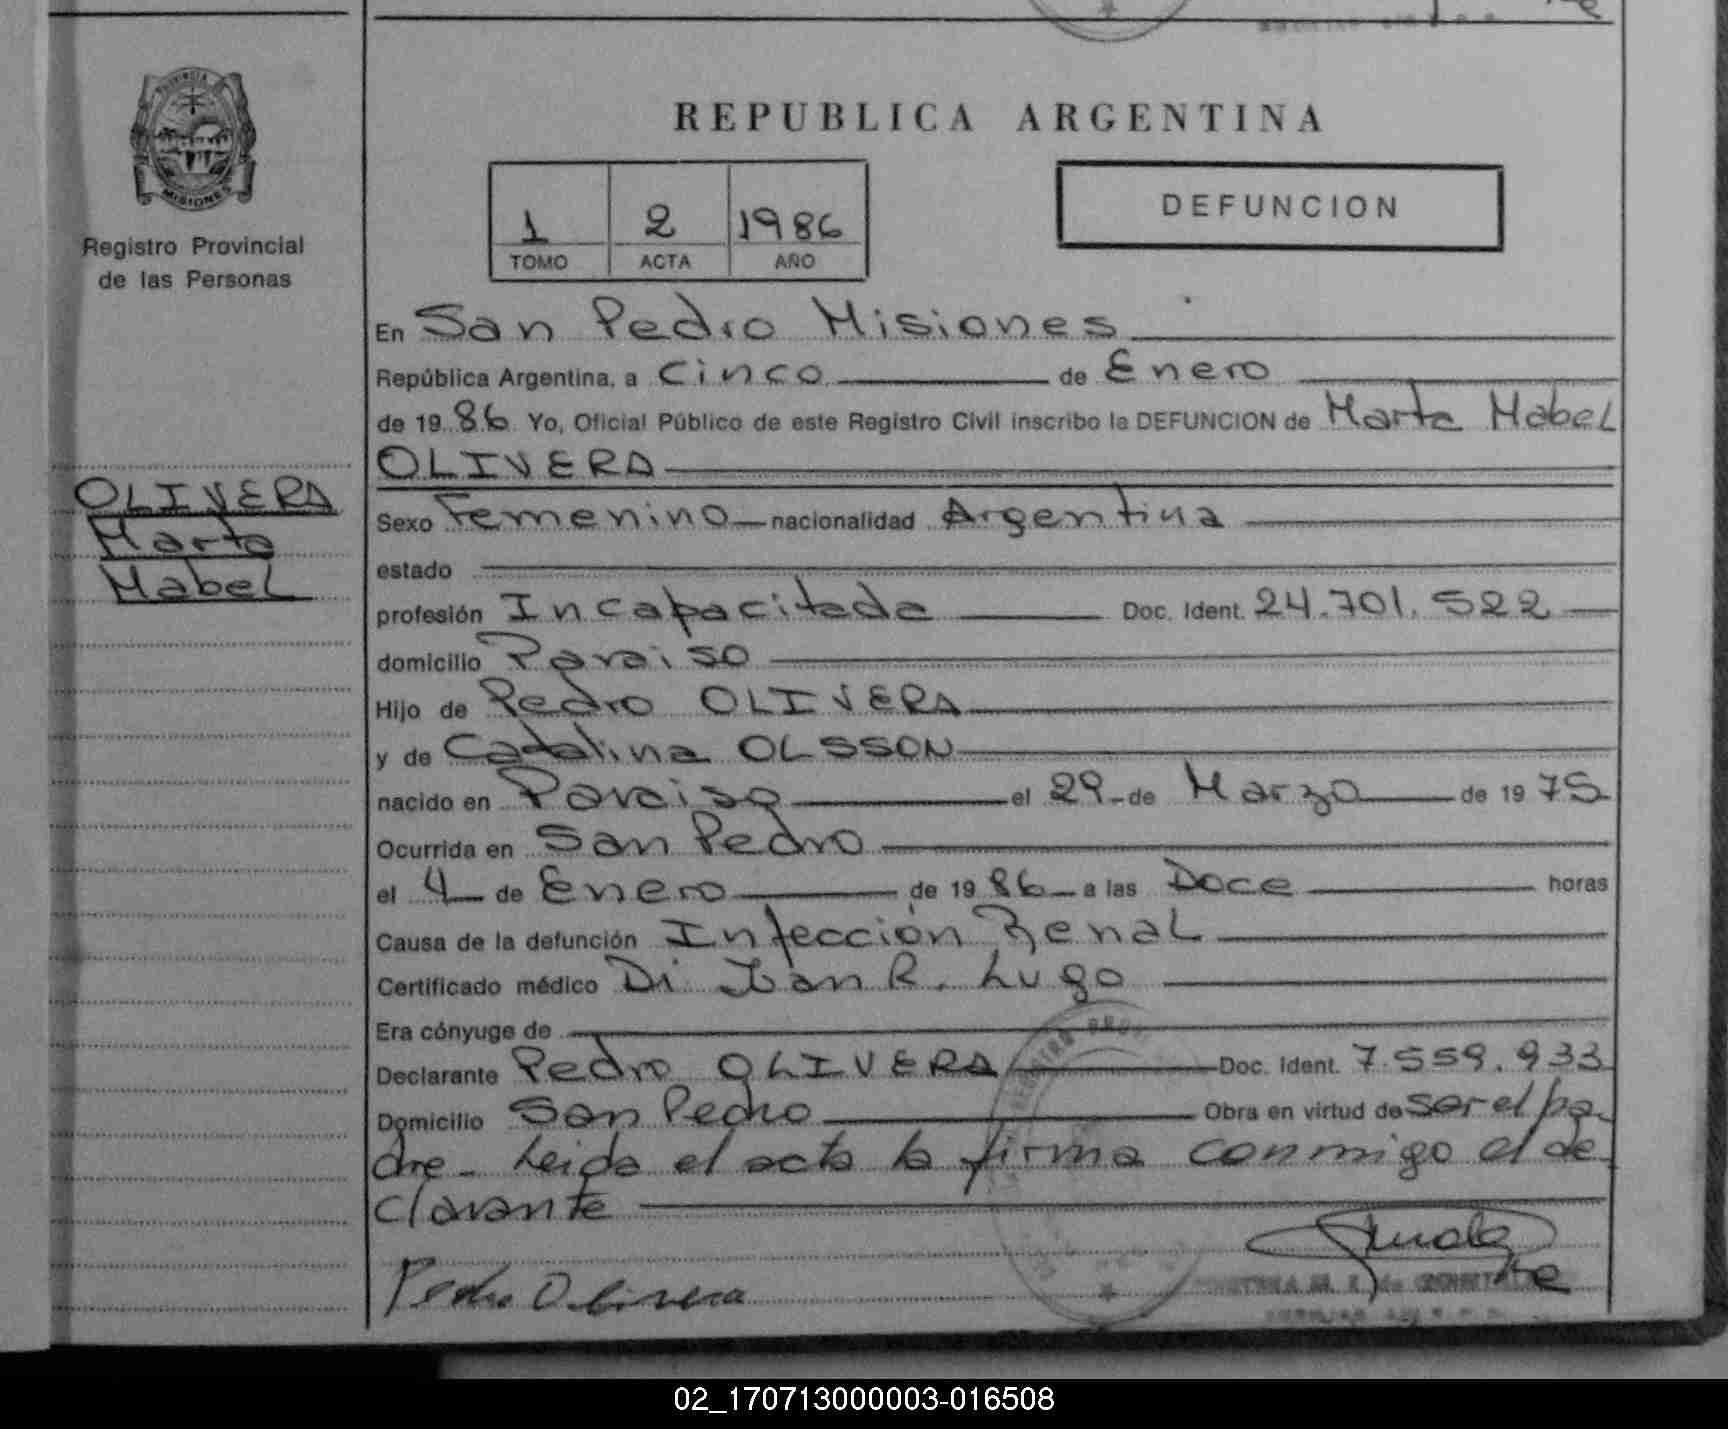 PROVINCIA
MISIONES
Registro Provincial
de las Personas
OLIVERA
Marta
Mabel
REPUBLICA ARGENTINA
1 2 1986
TOMO ACTA AÑO
DEFUNCION
En San Pedro Misiones
República Argentina, a cinco de Enero
de 19 86 Yo, Oficial Público de este Registro Civil inscribo la DEFUNCION de Marta Mabel
OLIVERA
Sexo Femenino nacionalidad Argentina
estado
profesión Incapacitada Doc. Ident. 24.701.522
domicilio Paraiso
Hijo de Pedro OLIVERA
y de Catalina OLSSON
nacido en Paraiso el 29 de Marzo de 19 75
Ocurrida en San Pedro
el 4 de Enero de 19 86 a las Doce horas
Causa de la defunción Infección Renal
Certificado médico Juan R. Lugo
Era cónyuge de
Declarante Pedro OLIVERA Doc. Ident. 7.559.933
Domicilio San Pedro Obra en virtud de ser el pa-
dre - Leida el acta la firma conmigo el de-
clarante
Pedro Olivera
02_170713000003-016508